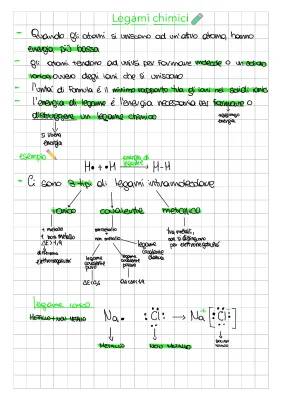 Legami chimici
- Quando gli atomi si uniscono ad un'altro atomo, hanno
energia più bassa
- gli atomi tendono ad unirsi per formare molecole o un solido
ionico ovvero degli ioni che si uniscono
- l'unità di formula è il minimo rapporto tra gli ioni nei solidi ionici
- l'energia di legame è l'energia necessaria per formare o
distruggere un legame chimico
si libera
energia
energia
esempio
H• + •H → H-H
energia di
legame
- Ci sono 3 tipi di legami intramolecolare
ionico covalente metallico
metallo
non metallo
ΔE>1,9
differenza
elettronegatività
non metallo
legame
covalente
puro
legame
covalente
polare
legame
covalente
dativo
tra metalli,
per elettronegatività
legame ionico
METALLO + NON METALLO
Na• :Cl: → Na+ [:Cl:]-
METALLO NON METALLO